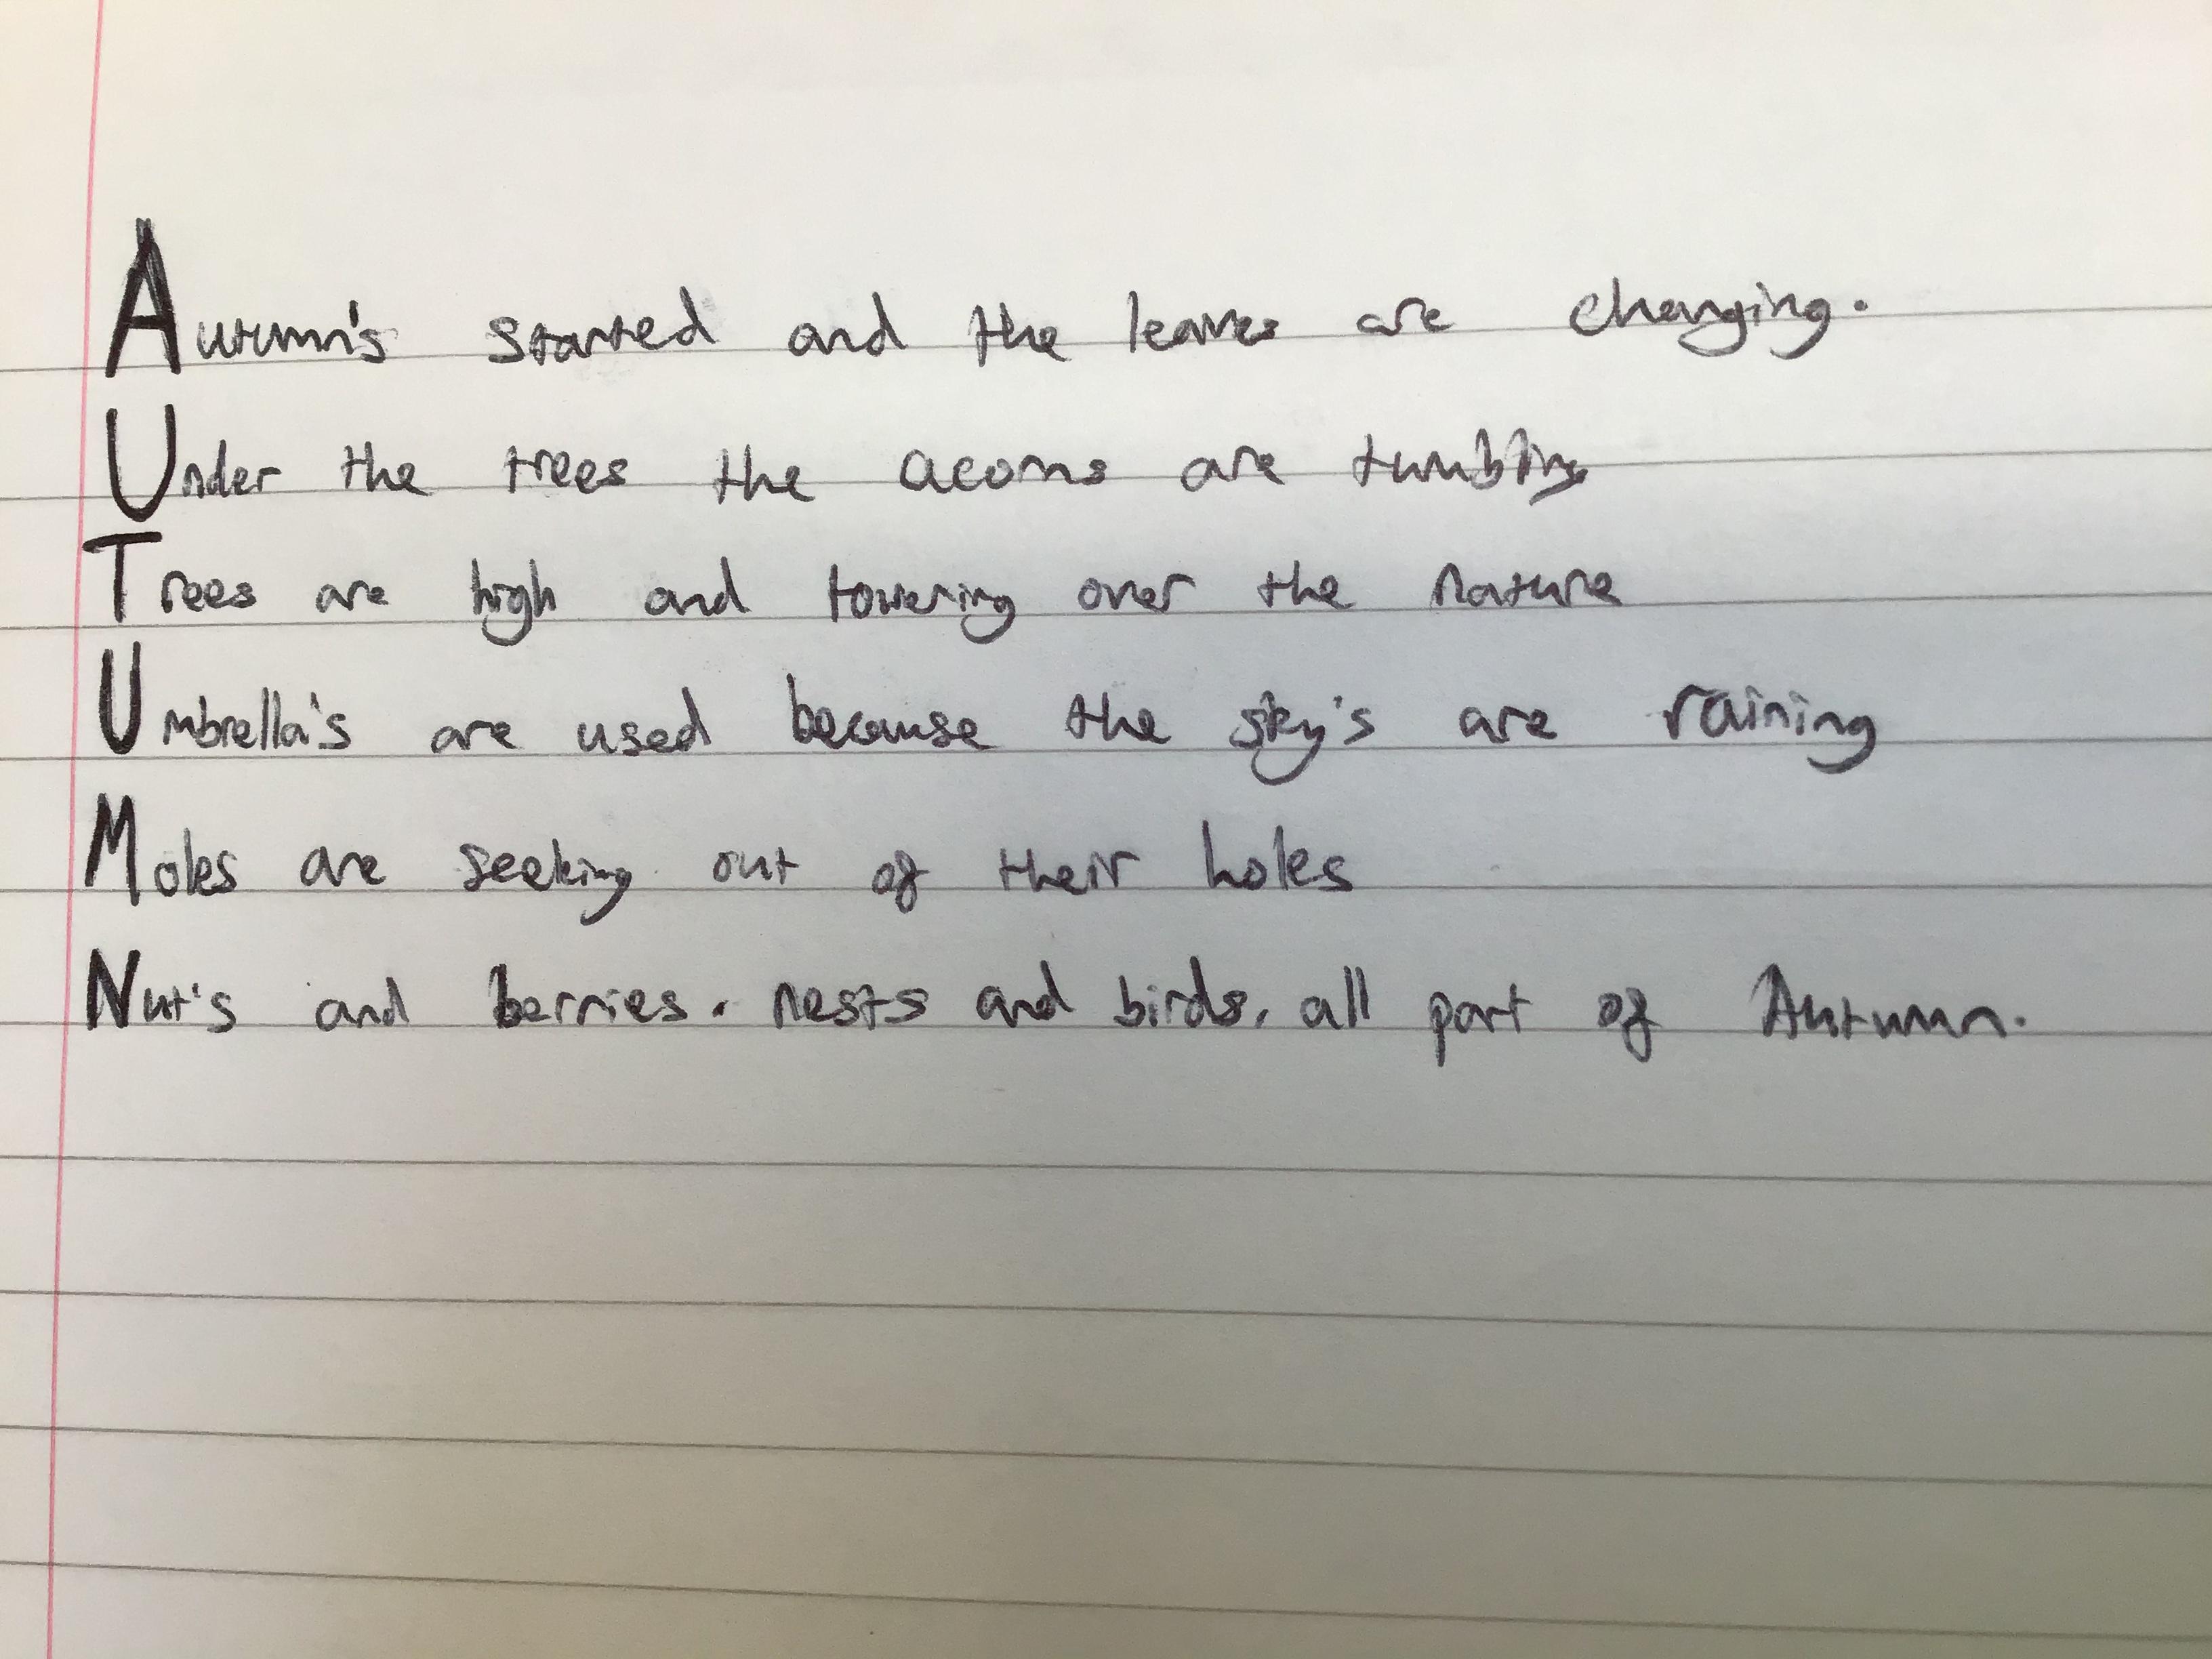 Autumn's started and the leaves are changing.
Under the trees the acorns are tumbling
Trees are high and towering over the nature
Umbrella's are used because the sky's are raining
Moles are seeking out of their holes
Nut's and berries, nests and birds, all part of Autumn.